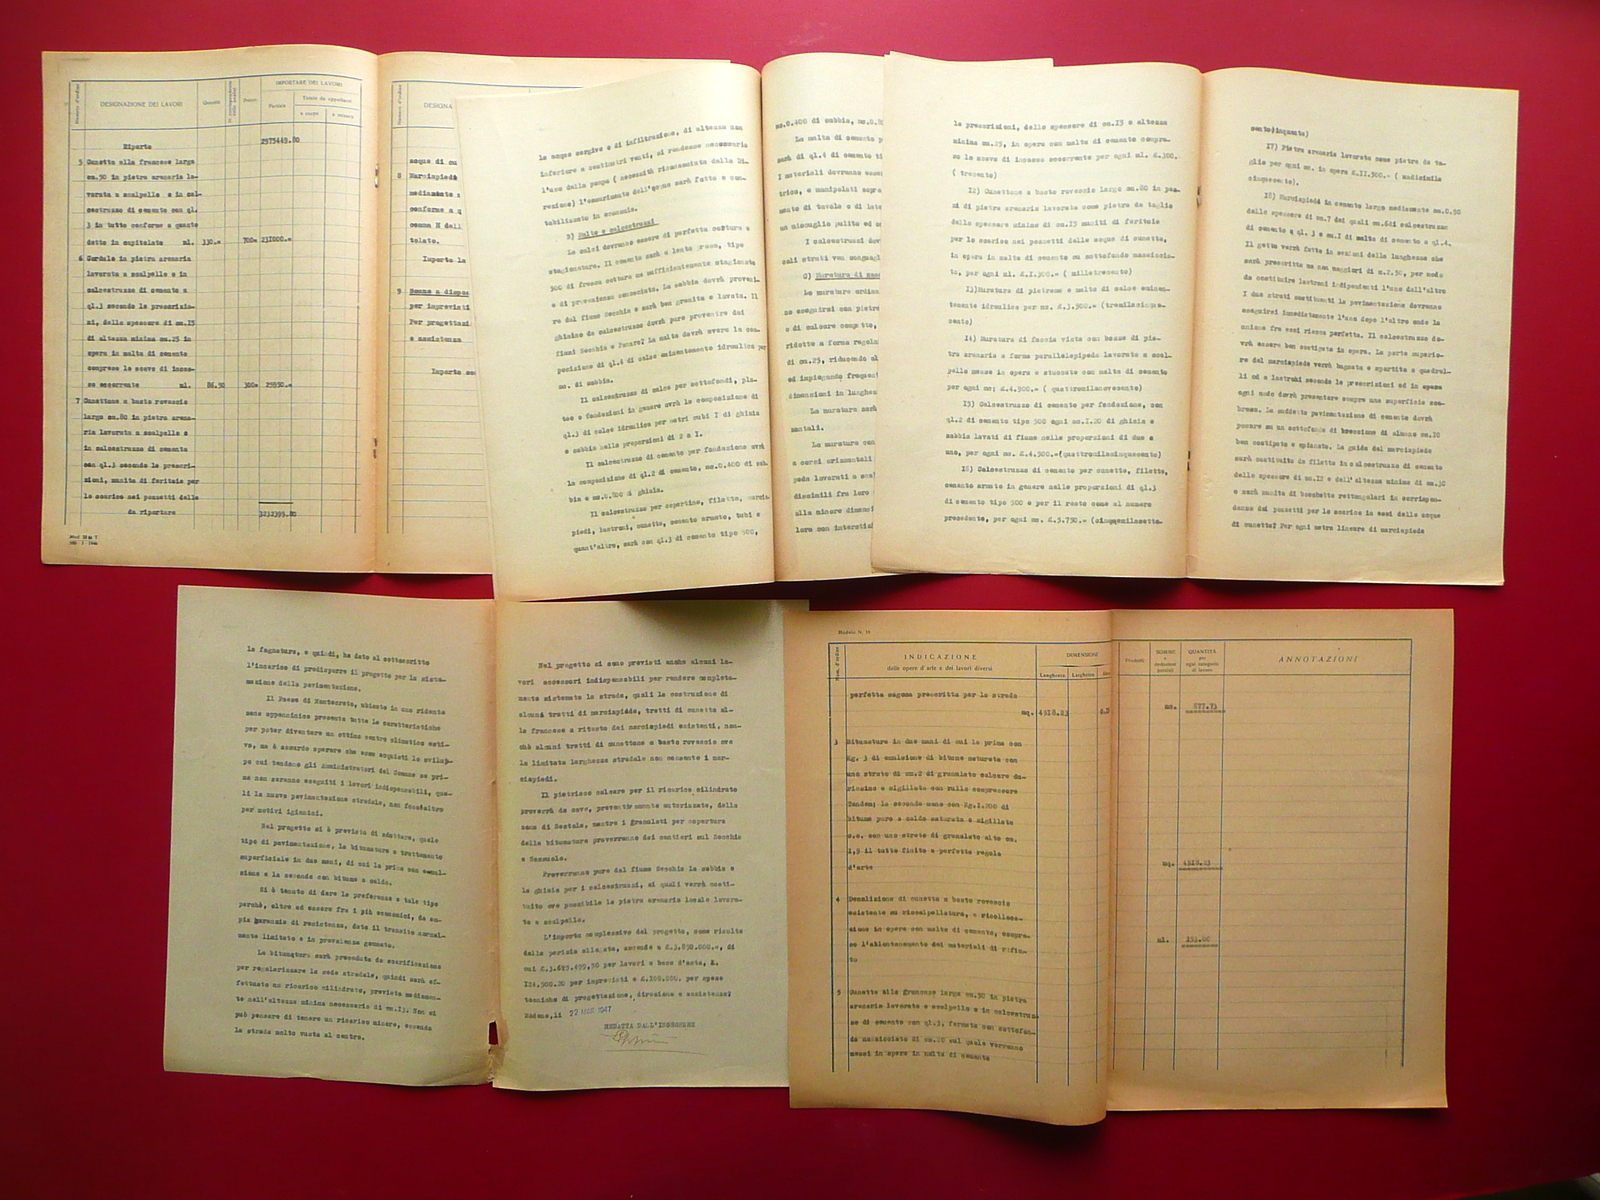 Numero d'ordine
DESIGNAZIONE DEI LAVORI
Quantità
Prezzo
IMPORTARE DEI LAVORI
Parziale
Totale da appaltarsi
a corpo
a misura
Riporto
2975449.80
5 Cunetta alla francese larga
cm.50 in pietra arenaria la-
vorata a scalpello e in cal-
cestruzzo di cemento con ql.
3 in tutto conforme a quanto
detto in capitolato ml. 330.= 700= 231000.=
6 Cordolo in pietra arenaria
lavorata a scalpello e in
calcestruzzo di cemento a
ql.3 secondo le prescrizio-
ni, dello spessore di cm.15
di altezza minima cm.25 in
opera in malta di cemento
compreso lo scavo di incas-
so occorrente ml. 86.50 300= 25950.=
7 Cunettone a basto rovescio
larga cm.80 in pietra arena-
ria lavorata a scalpello e
in calcestruzzo di cemento
con ql.3 secondo le prescri-
zioni, munito di feritoie per
lo scarico nei pozzetti delle
da riportare 3232395.80
Numero d'ordine
DESIGNA
acque di cu
8 Marciapiedi
mediamente s
conforme a q
comma H dell
tolato.
Importo la
9 Somme a dispos
per imprevisti
Per progettazi
e assistenza
Importo com
le acque sorgive o di infiltrazione, di altezza non
inferiore a centimetri venti, si rendesse necessario
l'uso della pompa ( necessità riconosciuta dalla Di-
rezione) l'esaurimento dell'acqua sarà fatto e con-
tabilizzato in economia.
B) Malte e calcestruzzi
Le calci dovranno essere di perfetta cottura e
stagionatura. Il cemento sarà a lenta presa, tipo
500 di fresca cottura ma sufficientemente stagionato
e di provenienza conosciuta. La sabbia dovrà proveni-
re dal fiume Secchia e sarà ben granita e lavata. Il
ghiaino da calcestruzzo dovrà pure provenire dai
fiumi Secchia e Panaro? La malta dovrà avere la com-
posizione di ql.4 di calce eminentemente idraulica per
mc. di sabbia.
Il calcestruzzo di calce per sottofondi, pla-
tee e fondazioni in genere avrà la composizione di
ql.3 di calce idraulica per metri cubi I di ghiaia
e sabbia nella proporzioni di 2 a I.
Il calcestruzzo di cemento per fondazione avrà
la composizione di ql.2 di cemento, mc.0.400 di sab-
bia e mc.0.800 di ghiaia.
Il calcestruzzo per copertine, filette, marcia-
piedi, lastroni, cunette, cemento armato, tubi e
quant'altro, sarà con ql.3 di cemento tipo 500,
mc.0.400 di sabbia, mc.0.80
La malta di cemento p
sarà di ql.4 di cemento ti
I materiali dovranno esse
trice, e manipolati sopra
mento di tavole o di late
un miscuglio pulito ed o
I calcestruzzi dov
coli strati ven conguagl
C) Muratura di mas
Le murature ordina
no eseguirsi con pietre
e di calcare compatto,
ridotte a forma regola
di cm.25, riducendo al
ed impiegando frequent
dimensioni in lunghez
La muratura sarà
mentali.
La muratura con
a corsi orizzontali
peda lavorati a scal
dissimili fra loro
alla minore dimensi
loro con interstizi
le prescrizioni, dello spessore di cm.I5 e altezza
minima cm.25, in opera con malta di cemento compre-
so lo scavo di incasso occorrente per ogni ml. £.300.
( trecento)
I2) Cunettone a basto rovescio largo cm.80 in pez-
zi di pietra arenaria lavorata come pietra da taglio
dello spessore minimo di cm.I5 muniti di feritoie
per lo scarico nei pozzetti delle acque di cunetta,
in opera in malta di cemento su sottofondo massiccia-
to, per ogni ml. £.I.300.= ( milletrecento)
I3)Muratura di pietrame e malta di calce eminen-
temente idraulica per mc. £.3.500.= (tremilacinque-
cento)
I4) Muratura di faccia vista con bozze di pie-
tra arenaria a forma parallelepipeda lavorata a scal-
pello messe in opera e stuccate con malta di cemento
per ogni mc; £.4.900.= ( quattromilanovecento)
I5) Calcestruzzo di cemento per fondazione, con
ql.2 di cemento tipo 500 ogni mc.I.20 di ghiaia e
sabbia lavati di fiume nelle proporzioni di due a
uno, per ogni mc. £.4.500.=(quattromilacinquecento)
I6) Calcestruzzo di cemento per cunette, filette,
cemento armato in genere nelle proporzioni di ql.3
di cemento tipo 500 e per il resto come al numero
precedente, per ogni mc. £.5.750.= (cinquemilasette-
centocinquanta)
I7) Pietra arenaria lavorata come pietra da ta-
glio per ogni mc. in opera £.II.500.= ( undicimila
cinquecento).
I8) Marciapiedi in cemento largo mediamente cm.0.90
dello spessore di cm.7 dei quali cm.6di calcestruzzo
di cemento a ql. 3 e cm.I di malta di cemento a ql.4.
Il getto verrà fatto in sezioni della lunghezza che
sarà prescritta ma non maggiori di m.2.50, per modo
da costituire lastroni indipendenti l'uno dall'altro
I due strati costituenti la pavimentazione dovranno
eseguirsi immediatamente l'uno dopo l'altro onde la
unione fra essi riesca perfetta. Il calcestruzzo do-
vrà essere ben costipato in opera. La parte superio-
re del marciapiede verrà bugnata e spartita a quadrel-
li od a lastroni secondo le prescrizioni ed in opera
ogni modo dovrà presentare sempre una superficie sca-
brosa. La suddetta pavimentazione di cemento dovrà
posare su un sottofondo di breccione di almeno cm.I0
ben costipato e spianato. La guida del marciapiede
sarà costituita da filette in calcestruzzo di cemento
dello spessore di cm.I2 e dell'altezza minima di cm.30
e sarà munita di bocchette rettangolari in corrispon-
denza dei pozzetti per lo scarico in essi delle acque
di cunetta? Per ogni metro lineare di marciapiede
la fognatura, e quindi, ha dato al sottoscritto
l'incarico di predisporre il progetto per la siste-
mazione della pavimentazione.
Il Paese di Montecreto, ubicato in una ridente
zona appenninica presenta tutte le caratteristiche
per poter diventare un ottimo centro climatico esti-
vo, ma è assurdo sperare che esso acquisti lo svilup-
po cui tendono gli Amministratori del Comune se pri-
ma non saranno eseguiti i lavori indispensabili, qua-
li la nuova pavimentazione stradale, non foss'altro
per motivi igienici.
Nel progetto si è previsto di adottare, quale
tipo di pavimentazione, la bitumatura a trattamento
superficiale in due mani, di cui la prima con emul-
sione e la seconda con bitume a caldo.
Si è tenuto di dare la preferenza a tale tipo
perchè, oltre ad essere fra i più economici, dà am-
pia garanzia di resistenza, dato il transito normal-
mente limitato e in prevalenza gommato.
La bitumatura sarà preceduta da scarificazione
per regolarizzare la sede stradale, quindi sarà ef-
fettuato un ricarico cilindrato, previsto mediamen-
te nell'altezza minima necessaria di cm.I5. Non si
può pensare di tenere un ricarico minore, essendo
la strada molto vuota al centro.
Nel progetto si sono previsti anche alcuni la-
vori accessori indispensabili per rendere completa-
mente sistemata la strada, quali la costruzione di
alcuni tratti di marciapiede, tratti di cunetta al-
la francese a ritocco dei marciapiedi esistenti, non-
chè alcuni tratti di cunettone a basto rovescio ove
la limitata larghezza stradale non consente i mar-
ciapiedi.
Il pietrisco calcare per il ricarico cilindrato
proverrà da cave, preventivamente autorizzate, della
zona di Sestola, mentre i granulati per copertura
della bitumatura proverranno dai cantieri sul Secchia
a Sassuolo.
Proverranno pure dal fiume Secchia la sabbia e
la ghiaia per i calcestruzzi, ai quali verrà sosti-
tuito ove possibile la pietra arenaria locale lavora-
ta a scalpello.
L'importo complessivo del progetto, come risulta
dalla perizia allegata, ascende a £.3.890.000.=, di
cui £.3.665.499,50 per lavori a base d'asta, £.
I24.500.20 per imprevisti e £.I00.000. per spese
tecniche di progettazione, direzione e assistenza?
Modena,li 22 MAR 1947
REDATTA DALL'INGEGNERE
Modulo N. 11
Num. d'ordine
INDICAZIONE
delle opere d'arte e dei lavori diversi
DIMENSIONI
Lunghezza
Larghezza
Prodotti
SOMME
e
deduzioni
parziali
QUANTITÀ
per
ogni categoria
di lavoro
ANNOTAZIONI
perfetta sagoma prescritta per la strada
mq. 4518.23
mc. 677.73
3 Bitumatura in due mani di cui la prima con
Kg. 3 di emulsione di bitume saturata con
uno strato di cm.2 di granulato calcare du-
rissimo e sigillata con rullo compressore
Tandem; la seconda mano con Kg.I.200 di
bitume puro a caldo saturata e sigillata
c.s. con uno strato di granulato alto cm.
I,5 il tutto finito a perfetta regola
d'arte
mq. 4518.23
4 Demolizione di cunetta a basto rovescio
esistente su riscalpellatura, e ricolloca-
zione in opera con malta di cemento, compre-
so l'allontanamento dei materiali di rifiu-
to
ml. 191.00
5 Cunetta alla francese larga cm.50 in pietra
arenaria lavorata a scalpello e in calcestruz
zo di cemento con ql.3, formata con sottofon-
do massicciato di cm.20 sul quale verranno
messi in opera in malta di cemento